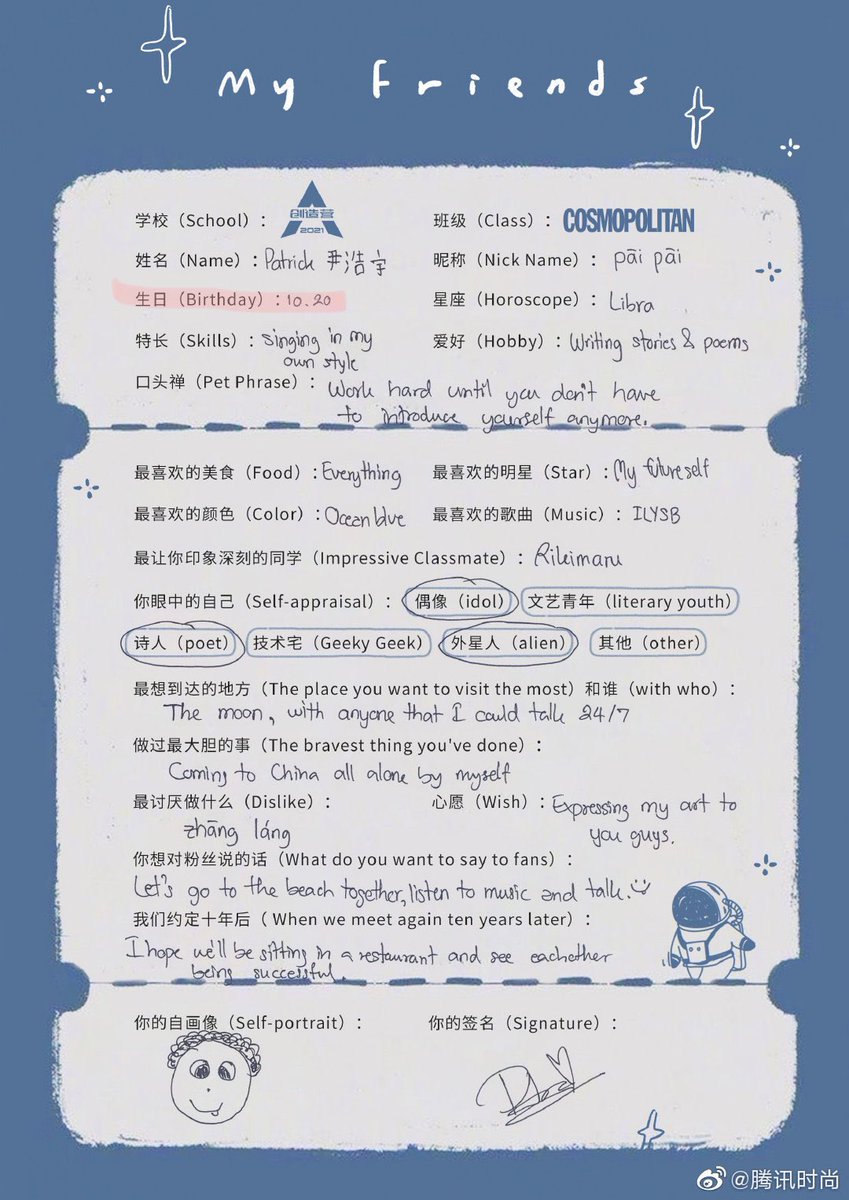 My Friends
学校（School）： 创造营 2021 班级（Class）： COSMOPOLITAN
姓名（Name）：Patrick 尹浩宇 昵称（Nick Name）： pāi pāi
生日（Birthday）：10.20 星座（Horoscope）： Libra
特长（Skills）：singing in my 爱好（Hobby）：Writing stories & poems
own style
口头禅（Pet Phrase）： Work hard until you don't have
to introduce yourself anymore.
最喜欢的美食（Food）：Everything 最喜欢的明星（Star）：My future self
最喜欢的颜色（Color）：Ocean blue 最喜欢的歌曲（Music）： ILYSB
最让你印象深刻的同学（Impressive Classmate）： Rikimaru
你眼中的自己（Self-appraisal）： 偶像（idol） 文艺青年（literary youth）
诗人（poet） 技术宅（Geeky Geek） 外星人（alien） 其他（other）
最想到达的地方（The place you want to visit the most）和谁（with who）：
The moon, with anyone that I could talk 24/7
做过最大胆的事（The bravest thing you've done）：
Coming to China all alone by myself
最讨厌做什么（Dislike）： 心愿（Wish）：Expressing my art to
zhāng láng you guys.
你想对粉丝说的话（What do you want to say to fans）：
Let's go to the beach together, listen to music and talk.
我们约定十年后（ When we meet again ten years later）：
I hope we'll be sitting in a restaurant and see eachother
being successful.
你的自画像（Self-portrait）： 你的签名（Signature）：
@腾讯时尚